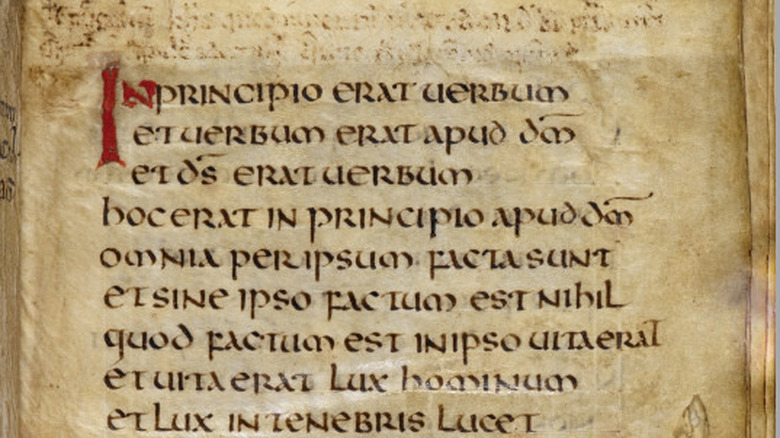 IN PRINCIPIO ERAT UERBUM
ET UERBUM ERAT APUD DM̄
ET DS̄ ERAT UERBUM
HOC ERAT IN PRINCIPIO APUD DM̄
OMNIA PER IPSUM FACTA SUNT
ET SINE IPSO FACTUM EST NIHIL
QUOD FACTUM EST IN IPSO UITA ERAT
ET UITA ERAT LUX HOMINUM
ET LUX IN TENEBRIS LUCET